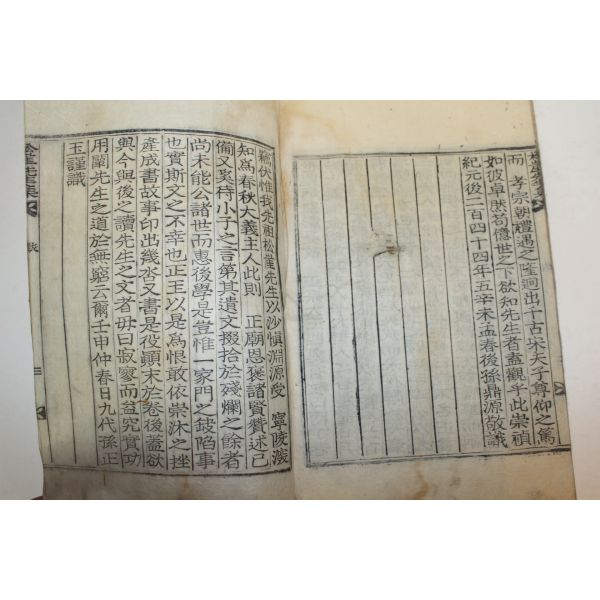 而 孝宗朝禮遇之隆逈出千古宋夫子尊仰之篤
如彼卓肰苟億世之下欲知先生者盍觀乎此崇禎
紀元後二百四十四年五辛未孟春後孫鼎源敬識
鄒伏惟我先祖松崖先生以沙愼淵源受 寧陵
知爲春秋大義主人此則 正廟恩褒諸賢贊述已
備又奚待小子之言第其遺文掇拾於殘爛之餘者
尚未能公諸世而惠後學是豈惟一家門之缺陷事
也實斯文之不幸也正玉以是爲恨敢依崇沐之挫
產成書故事印出幾帙又書是役顚末於卷後蓋欲
與今與後之讀先生之文者毋曰寂寥而益究實功
用闡先生之道於無窮云爾壬申仲春日九代孫正
玉謹識
跋